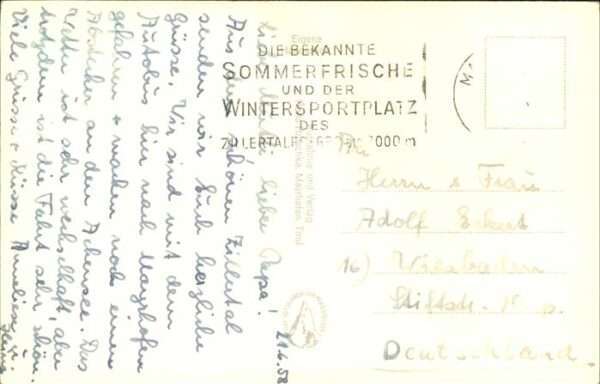 21.6.58
Liebe Mutti lieber Papa!
Aus dem schönen Zillertal
senden wir Euch herzliche
Grüsse. Wir sind mit dem
Autobus hier nach Mayrhofen
gefahren + machen noch einen
Abstecher an den Achensee. Das
Wetter ist sehr wechselhaft, aber
trotzdem ist die Fahrt sehr schön.
Viele Grüsse + Küsse
Heinz
DIE BEKANNTE
SOMMERFRISCHE
UND DER
WINTERSPORTPLATZ
DES
ZILLERTALES
Eigene
und Verlag
Mayrhofen, Tirol
An
Herrn & Frau
Adolf Eckert
16) Wiesbaden
Stiftstr.
Deutschland